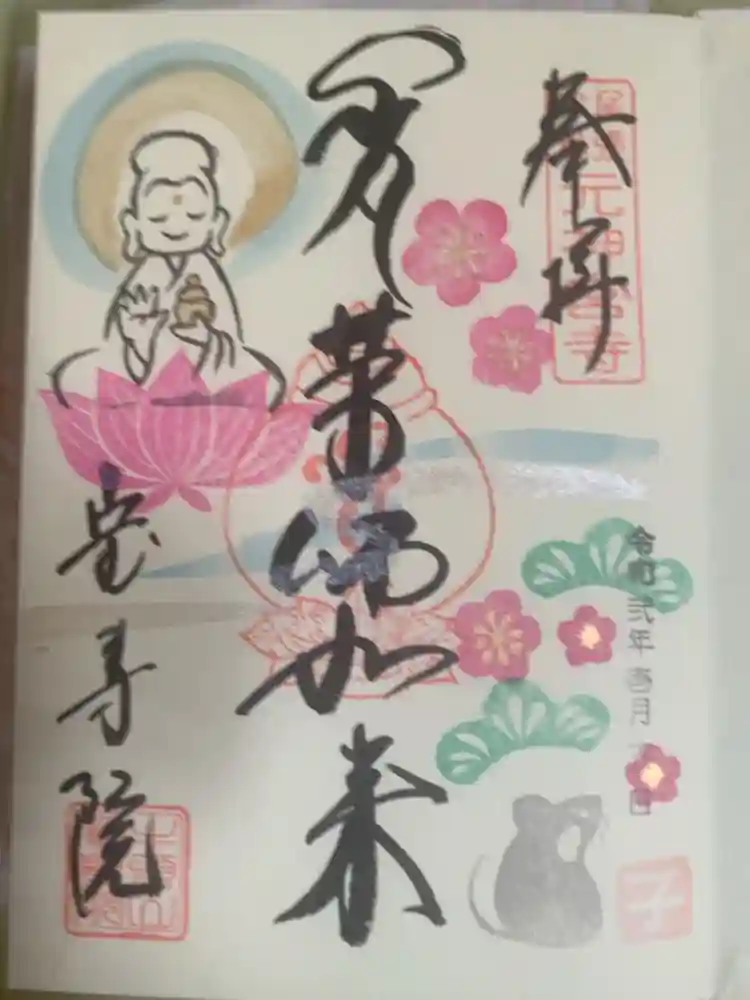 奉拝
元神宮寺
薬師如来
宝寿院
令和 弐年 壱月 日
子